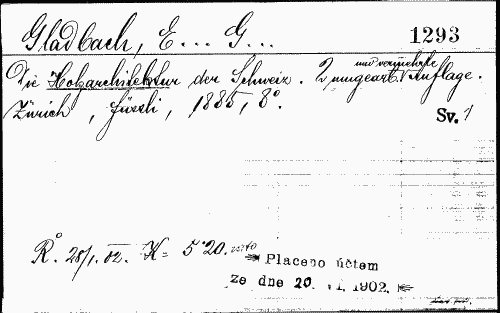 Gladbach, E... G...
1293
Die Holzarchitektur der Schweiz. 2 umgearb. und vermehrte Auflage.
Zürich, Füssli, 1885, 8°.
Sv. 1
R. 28/1. 02. K= 5˙20.
Placeno účtem
ze dne 20. VI. 1902.